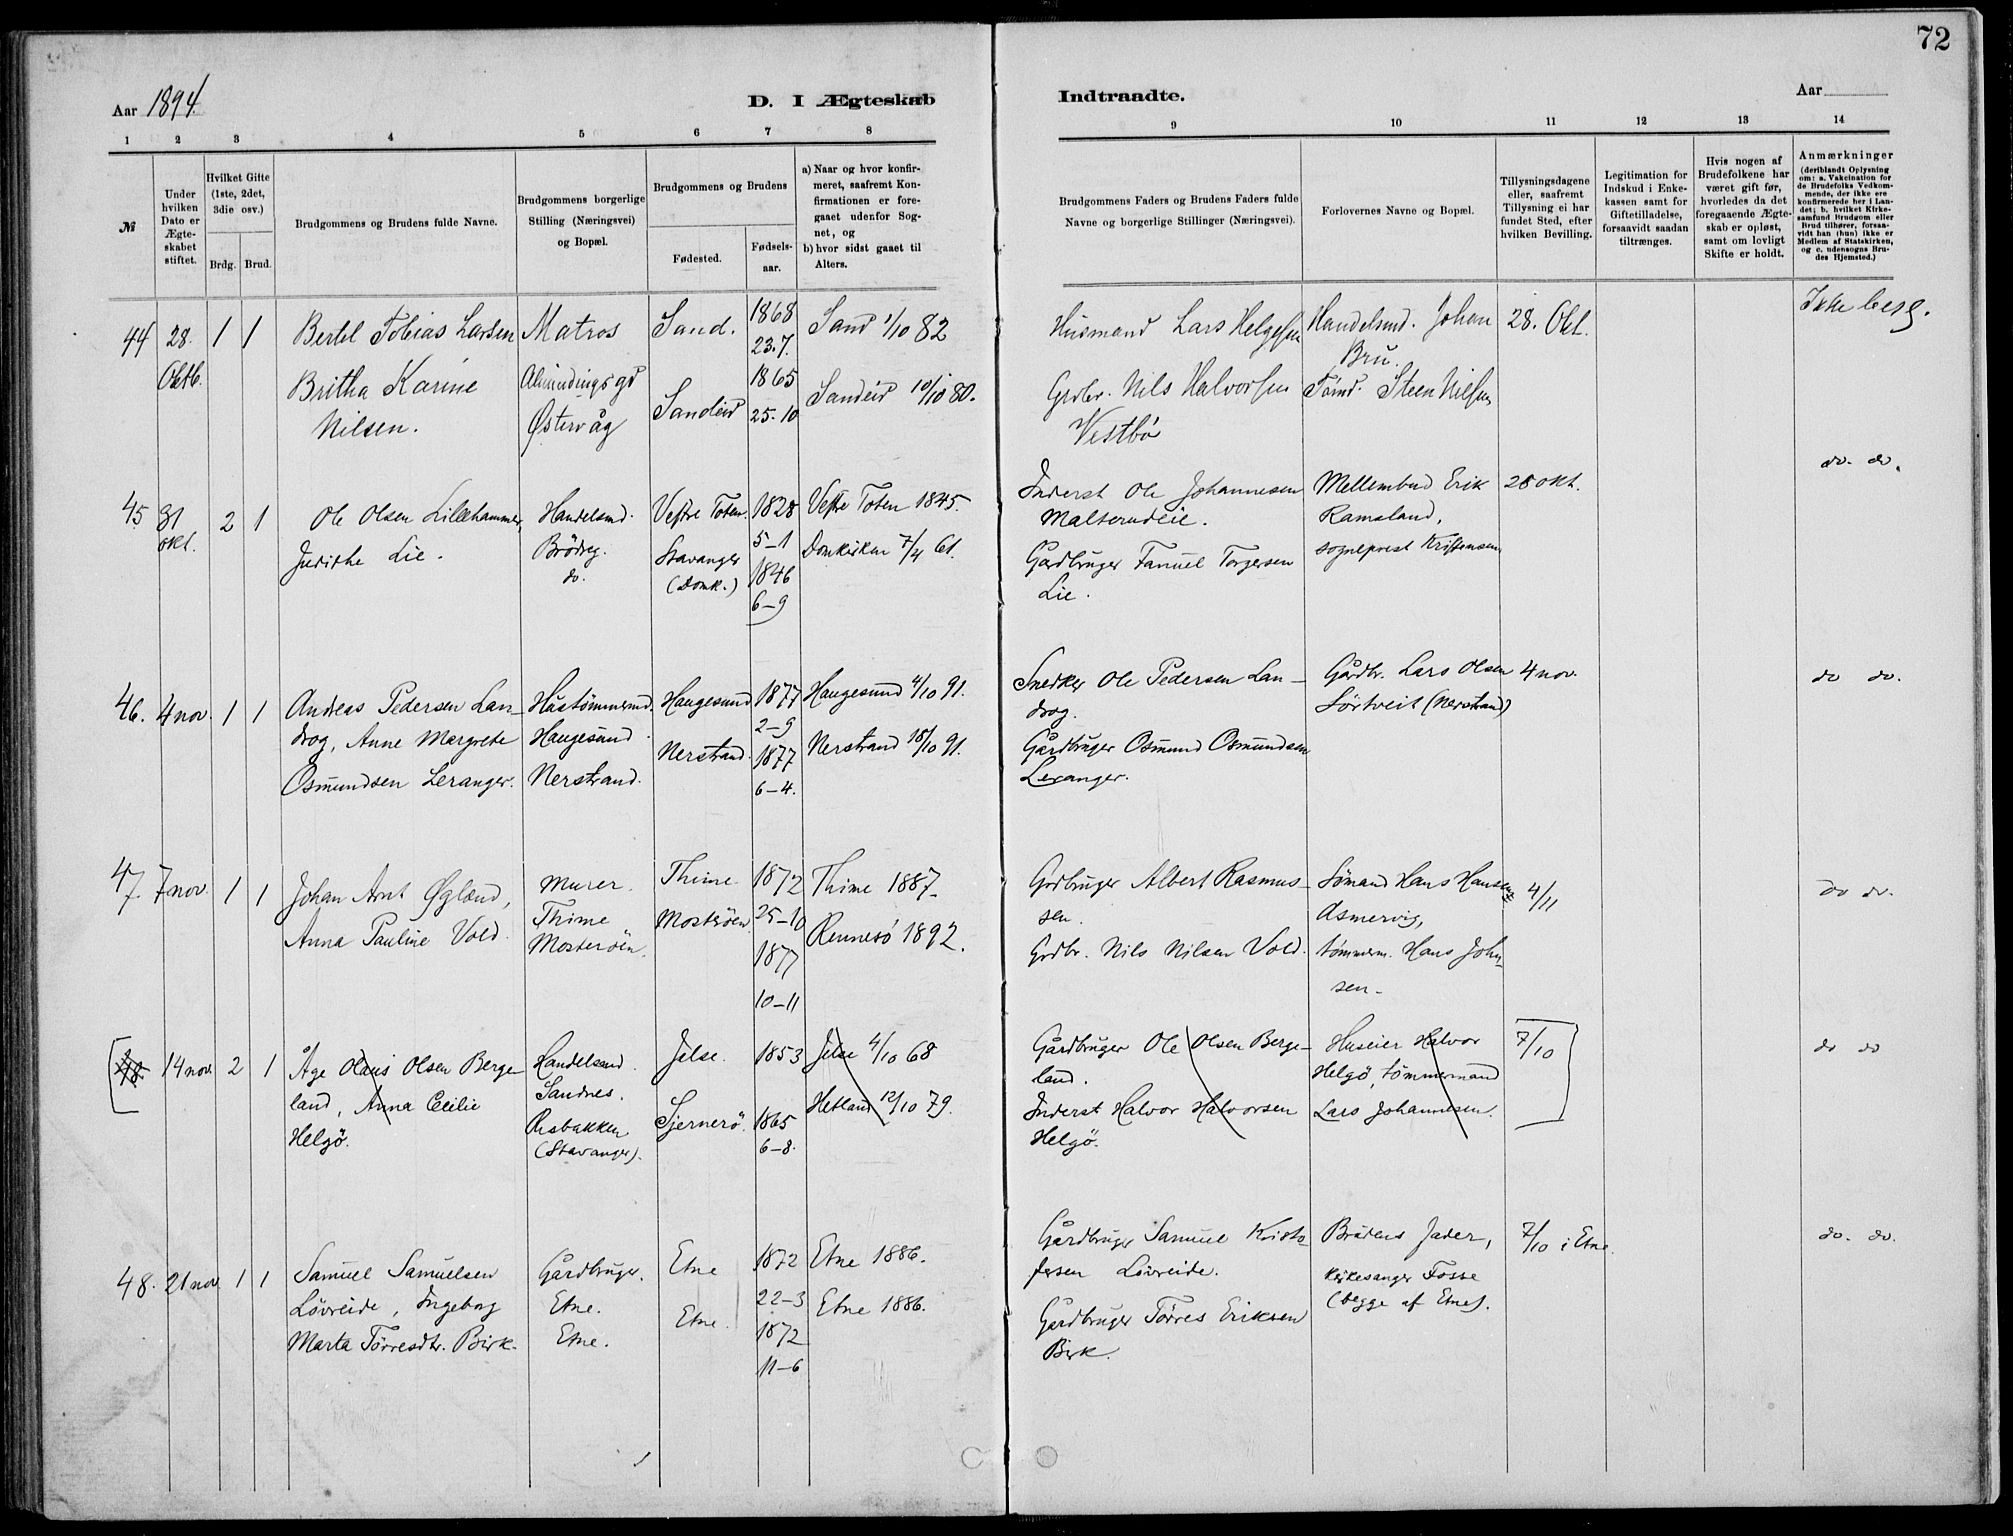 72
Aar 1894.
D. I Ægteskab
Indtraadte.
Aar
1 2 3 4 5 6 7 8
9 10 11 12 13 14
№
Under hvilken Dato er Ægte-skabet stiftet.
Hvilket Gifte (1ste, 2det, 3die osv.)
Brdg. Brud.
Brudgommens og Brudens fulde Navne.
Brudgommens borgerlige Stilling (Næringsvei) og Bopæl.
Brudgommens og Brudens
Fødested.
Fødsels-aar.
a) Naar og hvor konfir-meret, saafremt Kon-firmationen er fore-gaaet udenfor Sog-net, og
b) hvor sidst gaaet til Alters.
Brudgommens Faders og Brudens Faders fulde Navne og borgerlige Stillinger (Næringsvei).
Forlovernes Navne og Bopæl.
Tillysningsdagene eller, saafremt Tillysning ei har fundet Sted, efter hvilken Bevilling.
Legitimation for Indskud i Enke-kassen samt for Giftetilladelse, forsaavidt saadan tiltrænges.
Hvis nogen af Brudefolkene har været gift før, hvorledes da det foregaaende Ægte-skab er opløst, samt om lovligt Skifte er holdt.
Anmærkninger (deriblandt Oplysning om: a. Vakcination for de Brudefolks Vedkom-mende, der ikke ere konfirmerede her i Lan-det; b. hvilket Kirke-samfund Brudgom eller Brud tilhører, forsaa-vidt han (hun) ikke er Medlem af Statskirken, og c. udensogns Bru-des Hjemsted.)
44 28. Oktb. 1 1
Bertel Tobias Larsen
Britha Karine
Nilsen.
Matros
Østervåg
Sand.
Sandeid
1868
23.7.
1865
25.10
Sand 1/10 82
Sandeid 10/10 80.
Husmand Lars Helgesen
Grdbr. Nils Halvorsen
Vestbø
Handelsmd. Johan
Bru.
Tømd. Steen Nilsen
28. Okt.
Ikke besl.
45 31 okt. 2 1
Ole Olsen Lillehammer,
Jurithe Lie.
Handelsmd.
Brödreg.
do.
Vestre Toten.
Stavanger
(Domk.)
1828
5-1
1846
6-9
Vestre Toten 1845.
Domkirken 7/4 61.
Inderst Ole Johannesen
Malterudeie.
Gårdbruger Tanuel Torgersen
Lie.
Mellembud Erik
Ramsland,
sogneprest Kristensen
28 okt.
do. do.
46. 4 nov. 1 1
Andreas Pedersen Lan-
drog, Anne Margrete
Osmundsen Leranger.
Hustömmermd.
Haugesund.
Nerstrand.
Haugesund
Nerstrand.
1877
2-9
1877
6-4.
Haugesund 4/10 91.
Nerstrand 18/10 91.
Snedker Ole Pedersen Lan-
drog.
Gårdbruger Osmund Osmundsen
Leranger.
Gårdbr. Lars Olsen
Sörtveit (Nerstrand)
4 nov.
do do.
47. 7 nov. 1 1
Johan Arnt Øgland,
Anna Pauline Vold.
Murer.
Thime
Mosterøen.
Thime
Mosterøen
1872
25-10
1877
10-11
Thime 1887.
Rennesö 1892.
Grdbruger Albert Rasmus-
sen.
Grdbr. Nils Nilsen Vold.
Sömand Hans Hansen
Asmervig,
tömmerm. Hans John-
sen.
4/11
do do.
48. 14 nov. 2 1
Åge Olaus Olsen Berge-
land, Anna Cecilie
Helgö.
Handelsmd.
Sandnes.
Risbakken
(Stavanger).
Jelse.
Sjernerö.
1853
1865
6-8.
Jelse 4/10 68
Hetland 12/10 79.
Gårdbruger Ole Olsen Berge-
land.
Inderst Halvor Halvorsen
Helgö.
Huseier Halvor
Helgö, tömmermand
Lars Johannesen.
7/10
do do
48. 21 nov. 1 1
Samuel Samuelsen
Lövreide, Ingeborg
Marta Törresdtr. Birk.
Gårdbruger.
Etne.
Etne.
Etne
Etne.
1872
22-3
1872
11-6
Etne 1886.
Etne 1886.
Gårdbruger Samuel Kristo-
fersen Lövreide.
Gårdbruger Törres Eriksen
Birk.
Brudens fader,
kirkesanger Fosse
(begge af Etne).
7/10 i Etne.
do. do.